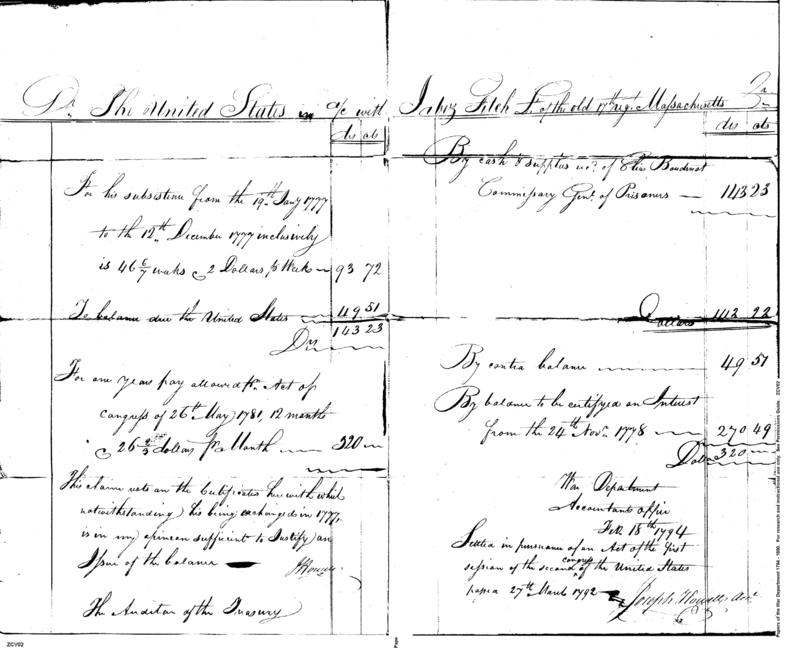 Dr. The United States in a/c with Jabez Fitch Lt. of the old 17th regt. Massachusetts
dls cts
For his subsistence from the 19th Jany 1777
to the 12th December 1777 inclusively
is 46 6/7 weeks @ 2 Dollars p Week 93 72
To balance due the United States 49 51
Drs 143 23
For one years pay allowed pr. Act of
Congress of 26th May 1781, 12 months
@ 26 2/3 dollars pr Month 320
This claim rests on the Certificates herewith which
notwithstanding his being exchanged in 1777,
is in my opinion sufficient to Justify an
Issue of the balance JHowell
The Auditor of the Treasury
dls cts
By cash & supplies of Elias Boudinot
Commissary Genl. of Prisoners 143 23
Dollars 143 23
By contra balance 49 51
By balance to be certifyed on Interest
from the 24th Novr. 1778 270 49
Dolls 320
War Department
Accountants office
Feb. 18th 1794
Settled in pursuance of an Act of the first
session of the second congress of the United States
passed 27th March 1792 Joseph Howell Acct.
ZCV02
Page
Papers of the War Department 1784 - 1800. For research and educational use only. See Permissions Guide. ZCV02